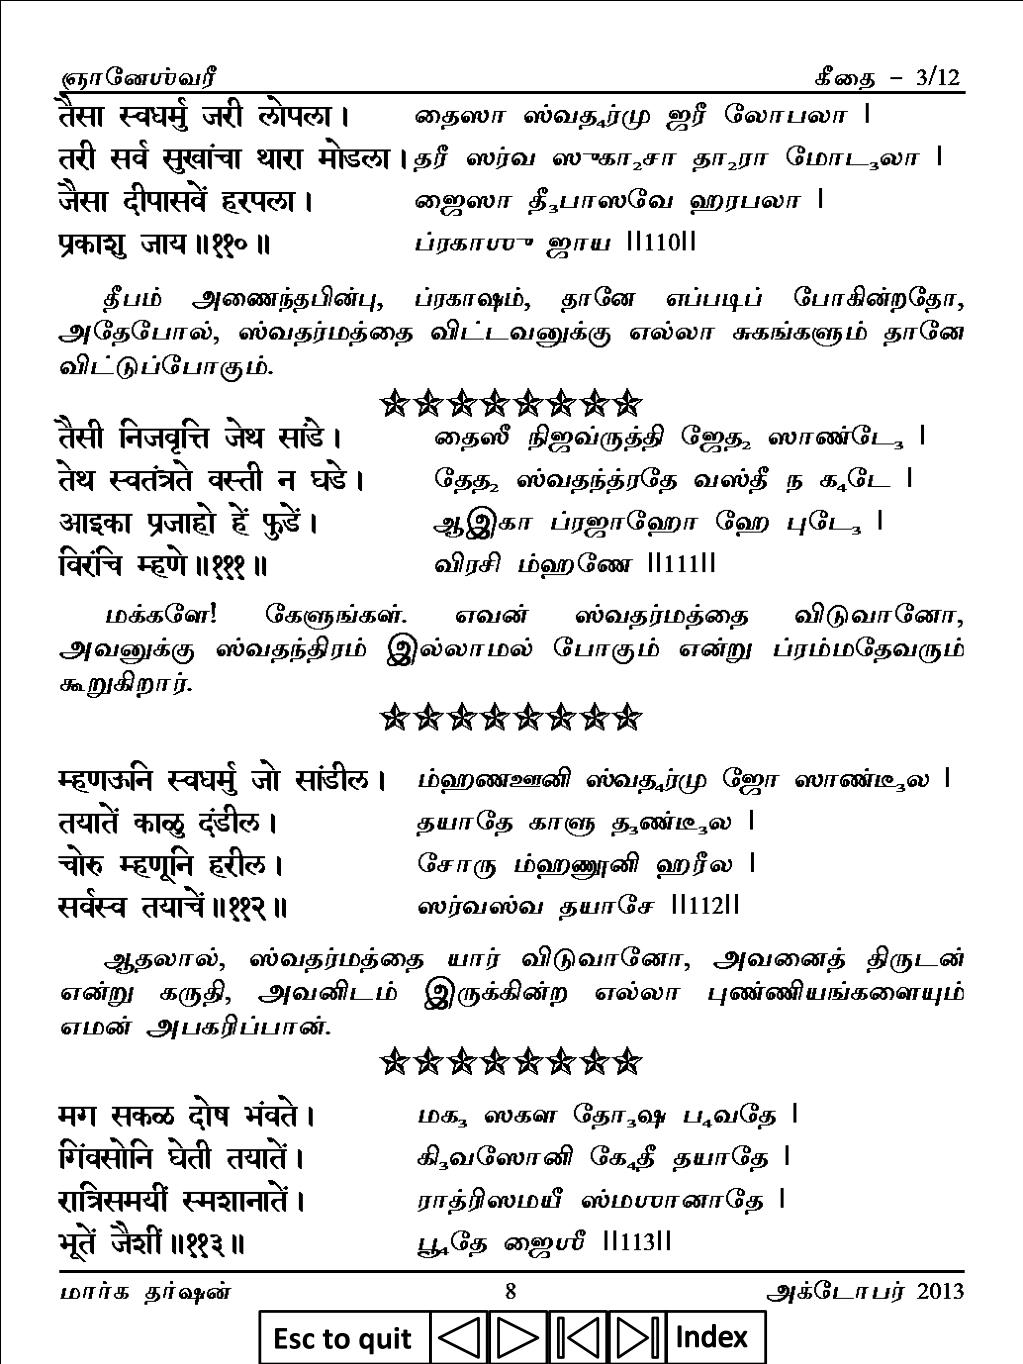 ஞானேஶ்வரீ கீதை – 3/12
तैसा स्वधर्मु जरी लोपला । தைஸா ஸ்வத₄ர்மு ஜரீ லோபலா |
तरी सर्व सुखांचा थारा मोडला । தரீ ஸர்வ ஸுகா₂சா தா₂ரா மோட₃லா |
जैसा दीपासवें हरपला । ஜைஸா தீ₃பாஸவே ஹரபலா |
प्रकाशु जाय ॥११०॥ ப்ரகாஶு ஜாய ||110||
தீபம் அணைந்தபின்பு, ப்ரகாஷம், தானே எப்படிப் போகின்றதோ,
அதேபோல், ஸ்வதர்மத்தை விட்டவனுக்கு எல்லா சுகங்களும் தானே
விட்டுப்போகும்.
तैसी निजवृत्ति जेथ सांडे । தைஸீ நிஜவ்ருத்தி ஜேத₂ ஸாண்டே₃ |
तेथ स्वतंत्रते वस्ती न घडे । தேத₂ ஸ்வதந்த்ரதே வஸ்தீ ந க₄டே |
आइका प्रजाहो हें फुडें । ஆஇகா ப்ரஜாஹோ ஹே புடே₃ |
विरंचि म्हणे ॥१११॥ விரசி ம்ஹணே ||111||
மக்களே! கேளுங்கள். எவன் ஸ்வதர்மத்தை விடுவானோ,
அவனுக்கு ஸ்வதந்திரம் இல்லாமல் போகும் என்று ப்ரம்மதேவரும்
கூறுகிறார்.
म्हणऊनि स्वधर्मु जो सांडील । ம்ஹணஊனி ஸ்வத₄ர்மு ஜோ ஸாண்டீ₃ல |
तयातें काळु दंडील । தயாதே காளு த₃ண்டீ₃ல |
चोरु म्हणूनि हरील । சோரு ம்ஹணூனி ஹரீல |
सर्वस्व तयाचें ॥११२॥ ஸர்வஸ்வ தயாசே ||112||
ஆதலால், ஸ்வதர்மத்தை யார் விடுவானோ, அவனைத் திருடன்
என்று கருதி, அவனிடம் இருக்கின்ற எல்லா புண்ணியங்களையும்
எமன் அபகரிப்பான்.
मग सकळ दोष भंवते । மக₃ ஸகள தோ₃ஷ ப₄வதே |
गिंवसोनि घेती तयातें । கி₃வஸோனி கே₄தீ தயாதே |
रात्रिसमयीं स्मशानातें । ராத்ரிஸமயீ ஸ்மஶானாதே |
भूतें जैशीं ॥११३॥ பூ₄தே ஜைஶீ ||113||
மார்க தர்ஷன் 8 அக்டோபர் 2013
Esc to quit Index